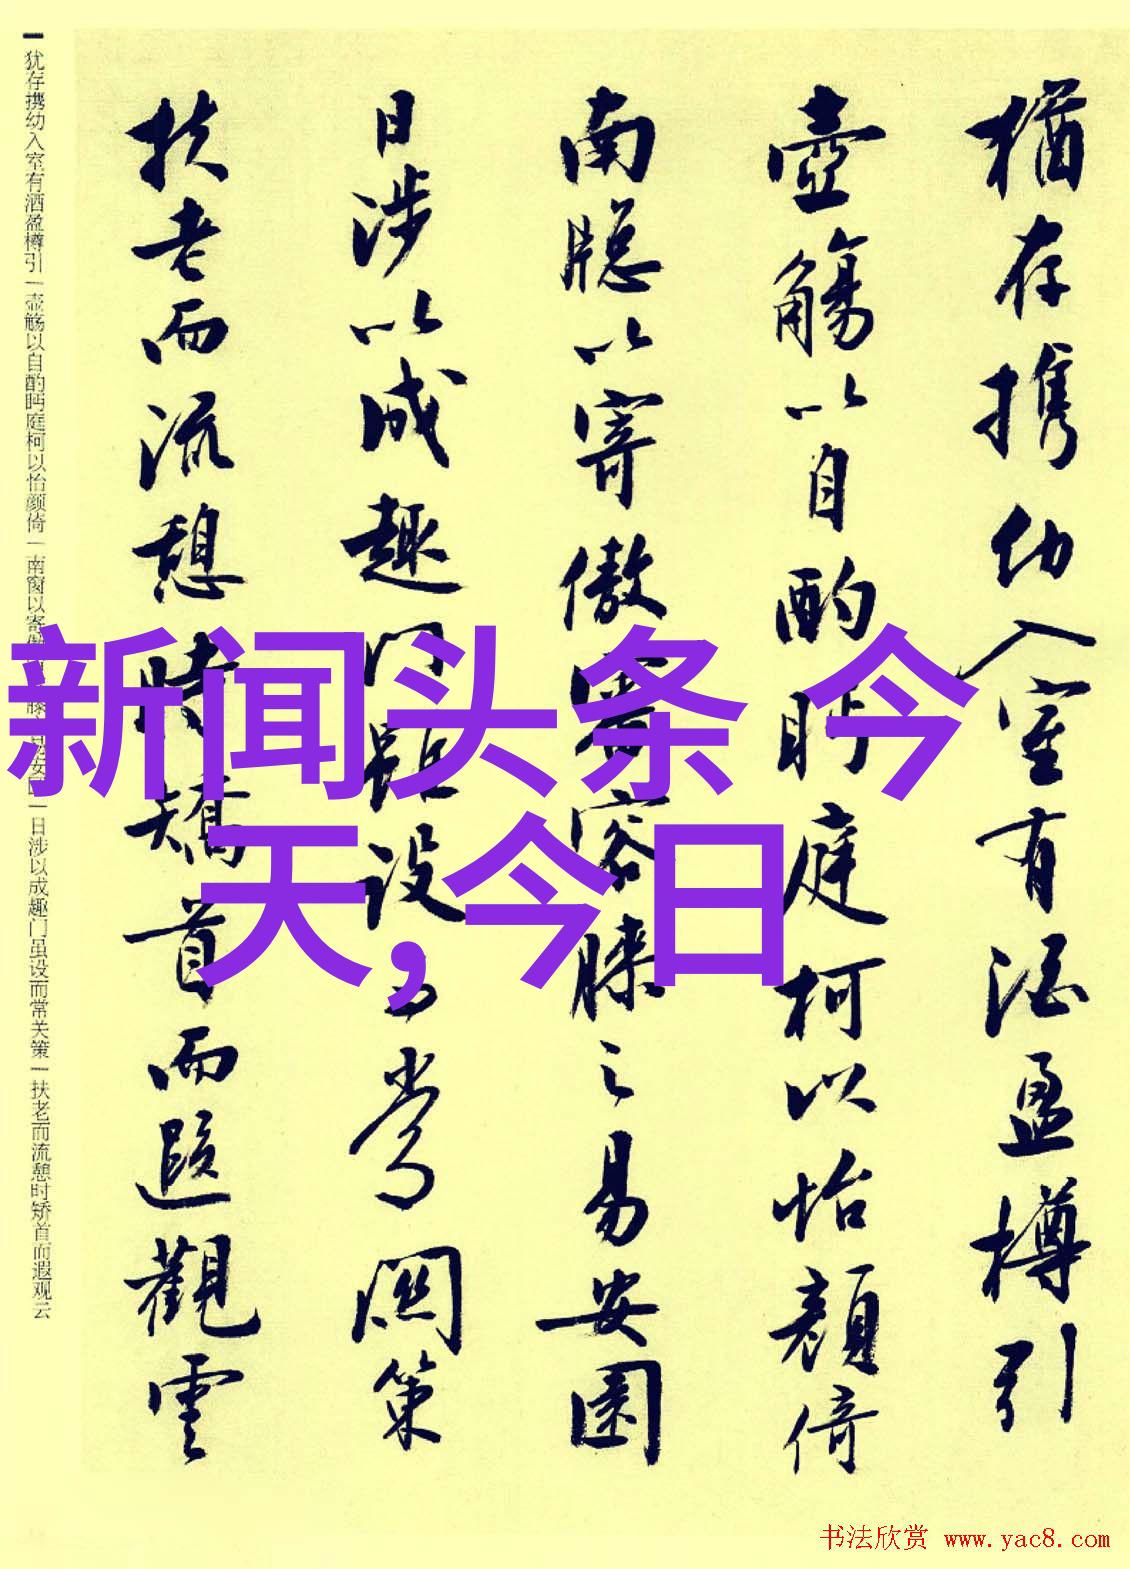 猶存携幼入室有酒盈樽引
壺觴以自酌眄庭柯以怡顏倚
南牕以寄傲審容膝之易安園
日涉以成趣門雖設而常關策
扶老而流憩時矯首而遐觀雲
犹存携幼入室有酒盈樽引|壶觞以自酌眄庭柯以怡颜倚|南窗以寄膝易安|日涉以成趣门虽设而常关策|扶老而流憩时矫首而遐观云
新闻头条 今
天,今日
书法欣赏 www.yac8.com